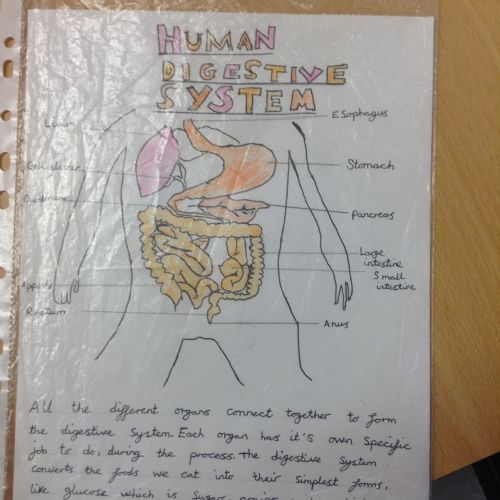 HUMAN
DIGESTIVE
SYSTEM
Liver
Esophagus
Stomach
Pancreas
Large
intestine
Small
intestine
Rectum
Anus
All the different organs connect together to form
the digestive system. Each organ has it's own specific
job to do, during the process. The digestive system
converts the foods we eat into their simplest forms,
like glucose which is